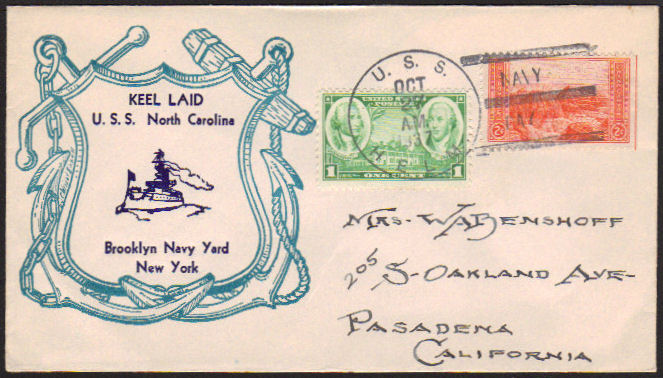 KEEL LAID
U. S. S. North Carolina
Brooklyn Navy Yard
New York
U. S. S.
OCT
A.M.
1937
NAVY
UNITED STATES
POSTAGE
1 ONE CENT 1
2¢ 2¢
Mrs. WABenshoff
205 S-Oakland Ave-
Pasadena
California